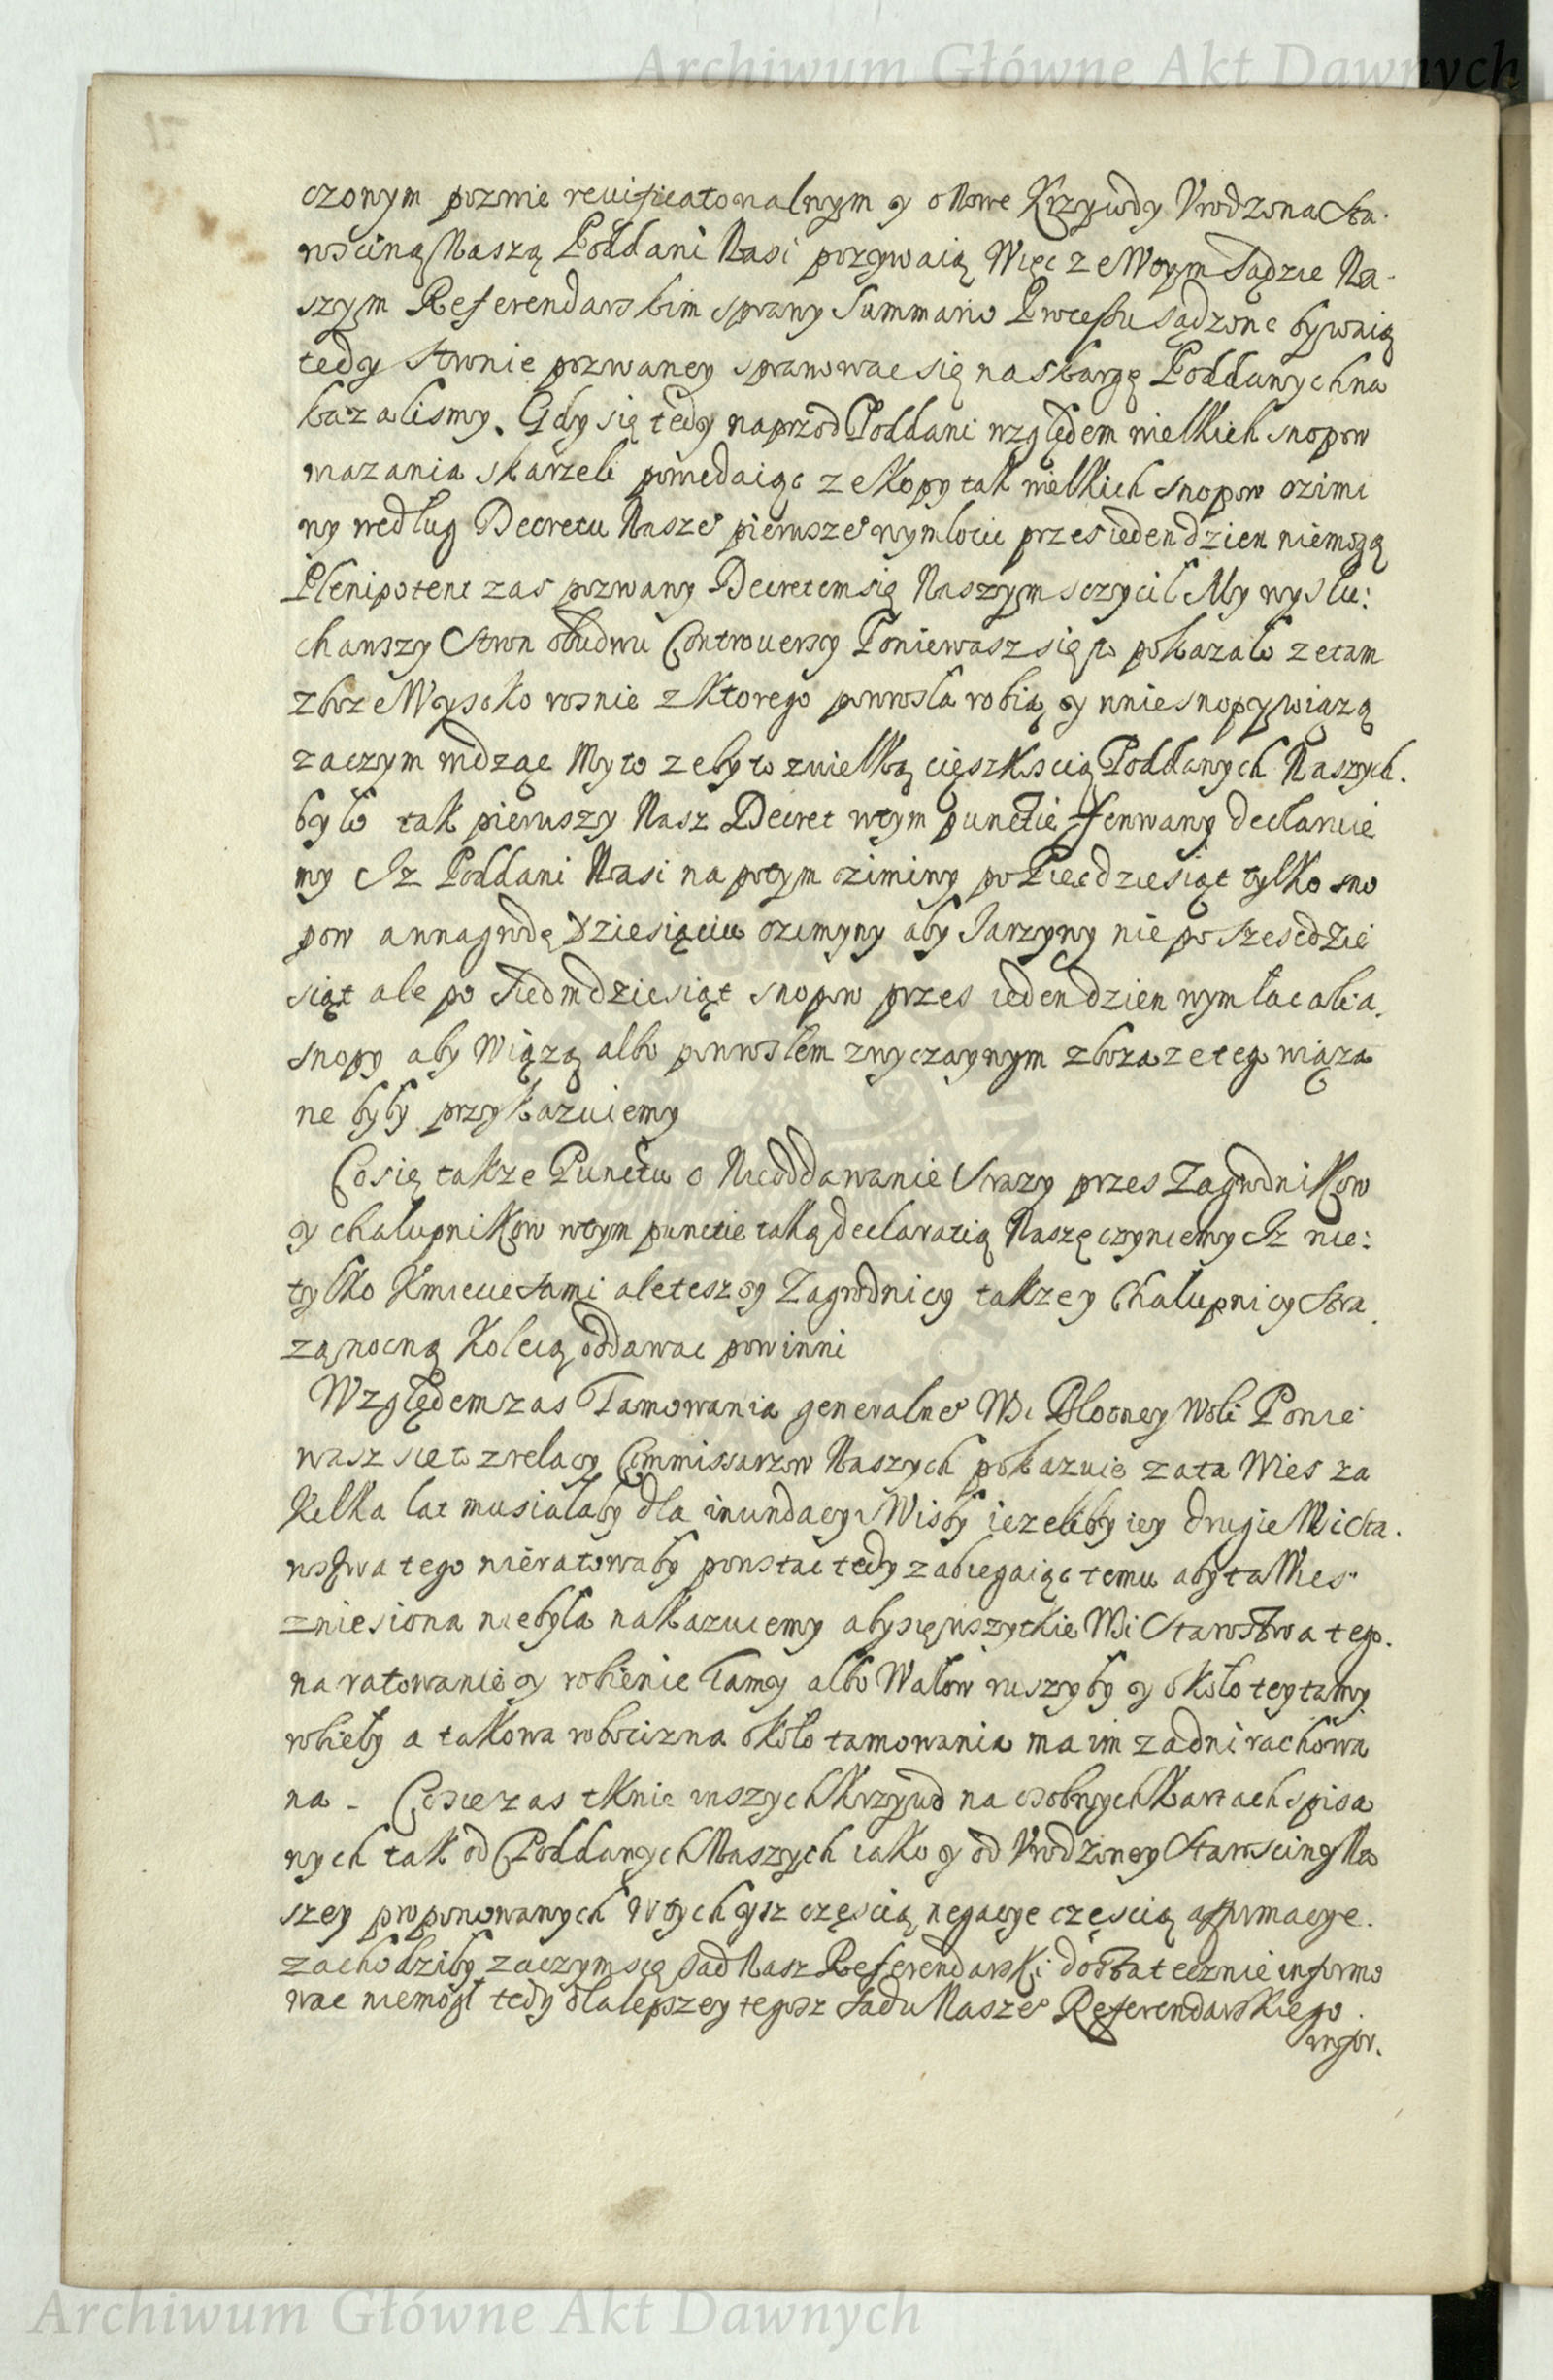 Archiwum Główne Akt Dawnych
czonym pozwie reuificatonalnym y o Nowe Krzywdy Vrodzona Sta.
rosciną Naszą Poddani Nasi pozywaią Więc ze Wtym Sądzie Na.
szym Referendarskim sprawy Summario Processu sądzone bywaią
tedy stronie pozwaney sprawowac się na skargę Poddanych na
kazalismy. Gdy się tedy naprzod Poddani względem wielkich snopow
wiazania skarzeli powiedaiąc ze Kopy tak wielkich snopow ozimi
ny według Decretu Nasze° pierwsze° wymłocic przes ieden dzien niemogą
Plenipotent zas pozwany Decretem się Naszym sczycil My wyslu:
chawszy Stron obudwu Controuersy Poniewasz się to pokazało ze tam
zboze Wysoko rosnie z Ktorego powrosla robią y wnie snopy wiązą
zaczym widząc My to ze by to zwielką cięszkoscią Poddanych Naszych.
było tak pierwszy Nasz Decret wtym punctie ferowany declaruie
my Iz Poddani Nasi na potym oziminy po Piecdziesiąt tylko sno
pow a nnagrodę dziesiąciu ozimyny aby Jarzyny nie po szescdzie
siąt ale po siedmdziesiąt snopow przes ieden dzien wymłacali a.
snopy aby Wiązą albo powrosłem zwyczaynym zboza ze teg wiąza
ne były przykazuiemy
Co się takze Punctu o Nieoddawanie Strazy przes Zagrodnikow
y chalupnikow wtym punctie taką declaratią Naszę czyniemy Iz nie:
tylko Kmiecie sami ale tesz y Zagrodnicy takze y Chalupnicy Stra.
zą nocną Koleią oddawac powinni
Względem zas Tamowania generalne° Wsi Błotney Woli Ponie
wasz sie to z relacy Commissarzow Naszych pokazuie ze ta Wies za
Kilka lat musialaby dla inundacyi Wisły iezeliby iey drugie Wsi Sta.
rostwa tego nieratowały powstac tedy zabiegaiąc temu aby ta Wies
zniesiona niebyla nakazuiemy aby się wszytkie Wsi Starostwa teg°.
na ratowanie y robienie Tamy albo Wałow ruszyły y około tey tamy
robieły a takowa robocizna około tamowania ma im za dni rachowa
na - Co sie zas tknie inszych Krzywd na osobnych Kartach spisa
nych tak od Poddanych Naszych iako y od Vrodzoney Starosciny Na
szey proponowanych w tych ysz częscią negacye częscią affirmacye.
zachodziły zaczym się sad Nasz Referendarski dostatecznie informo
wac niemogł tedy dla lepszey tegosz sadu Nasze° Referendarskiego.
infor.
Archiwum Główne Akt Dawnych